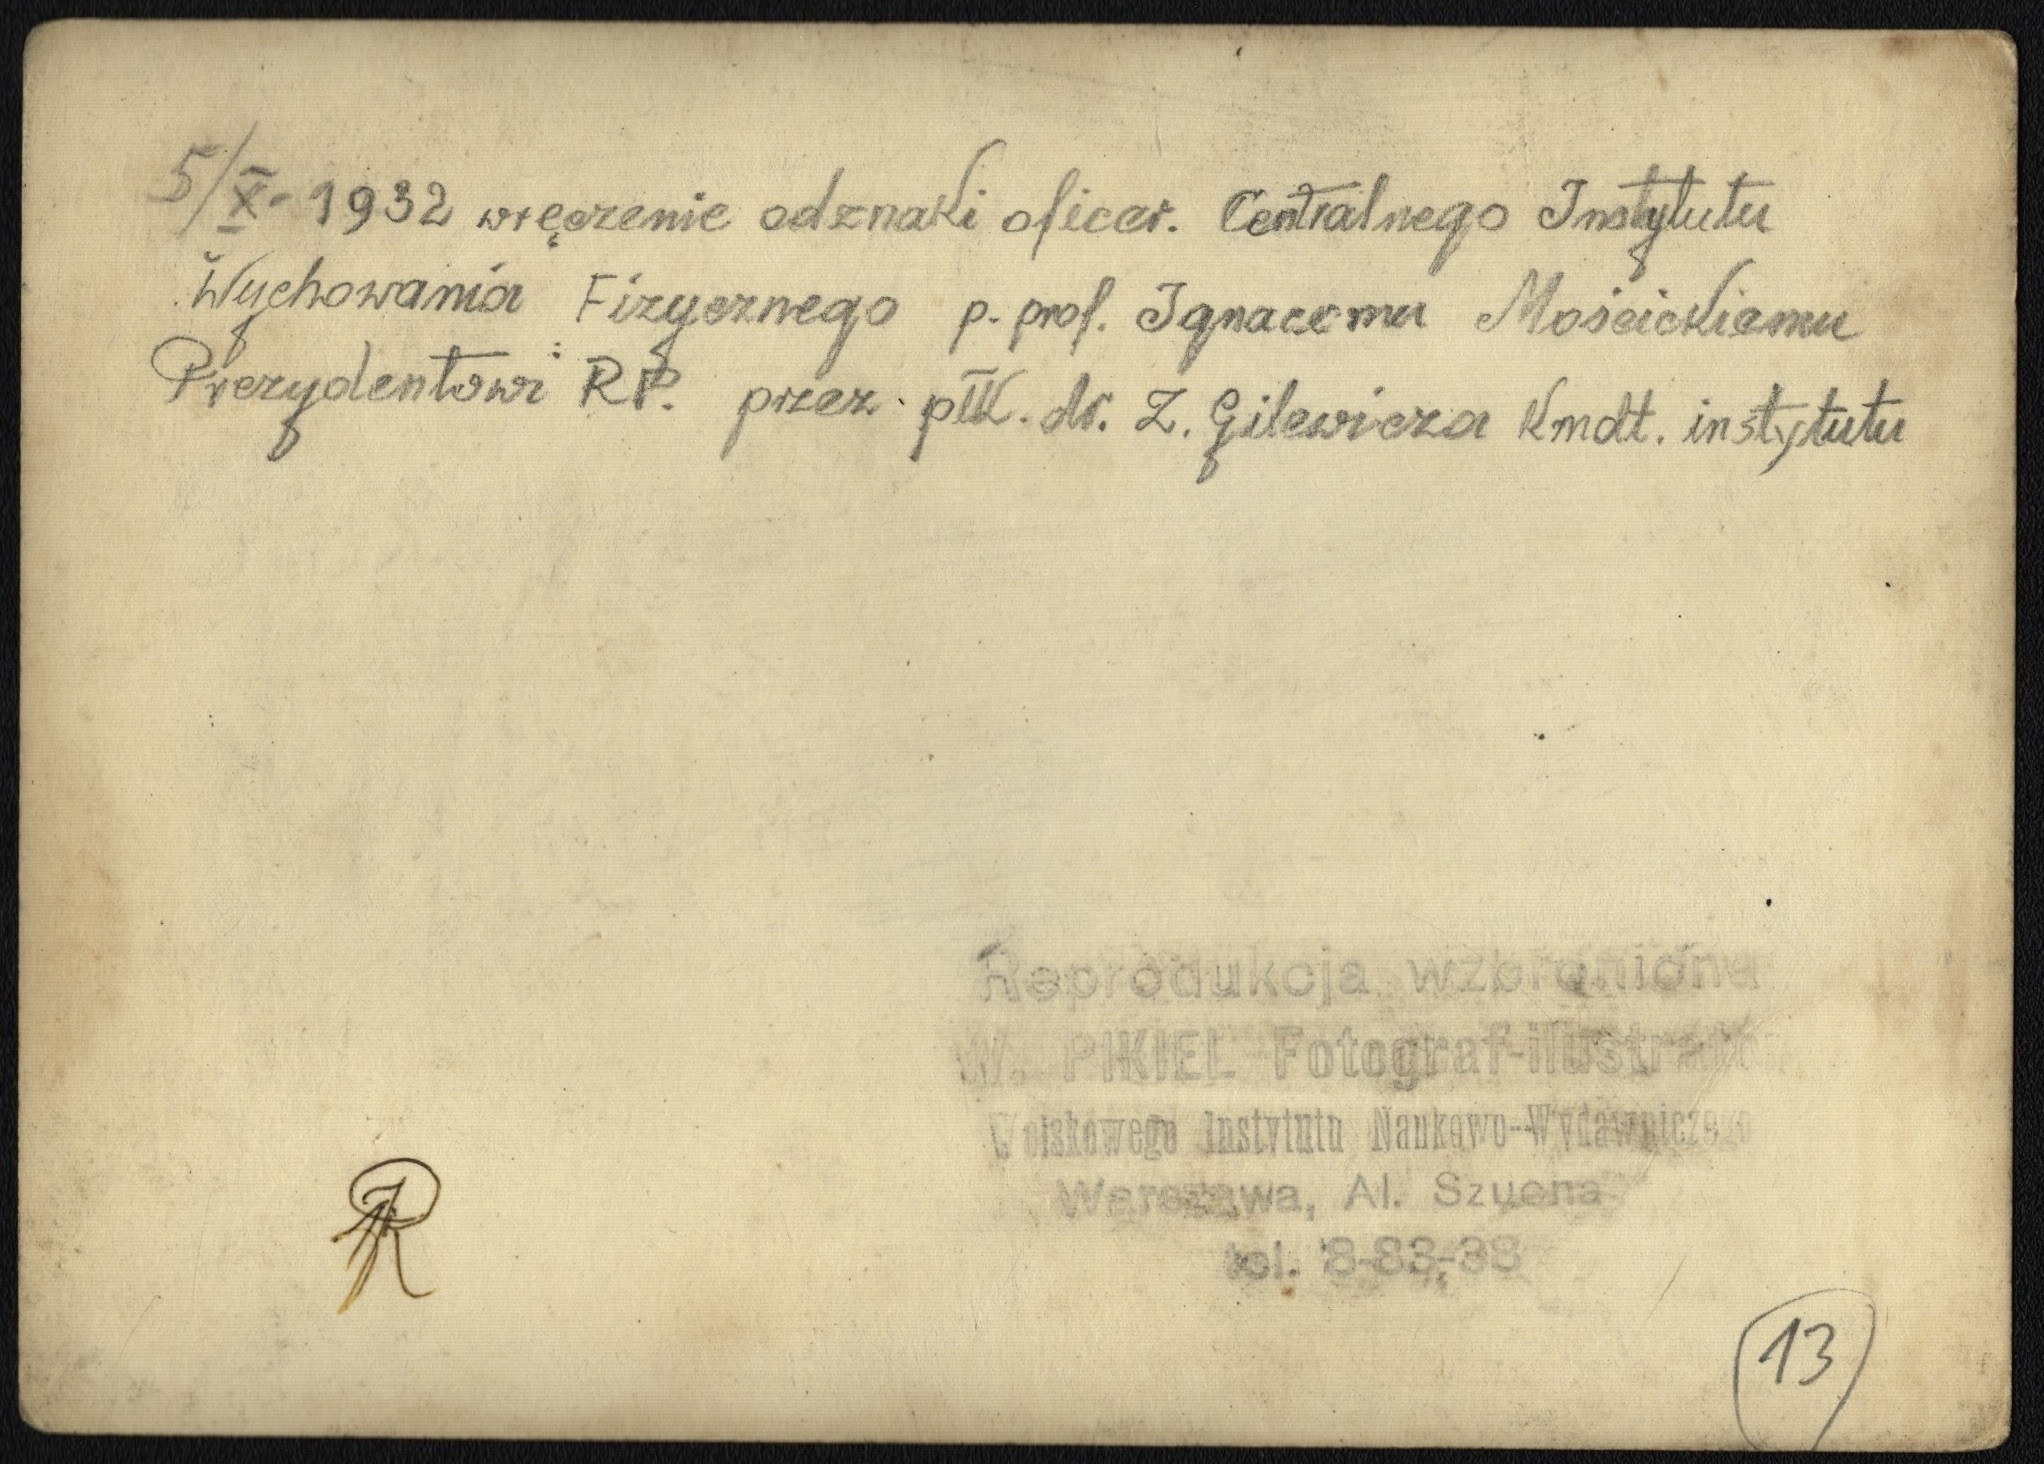 5/X. 1932 wręczenie odznaki oficer. Centralnego Instytutu
Wychowania Fizycznego p. prof. Ignacemu Mościckiemu
Prezydentowi RP. przez płk. dr. Z. Gilewicza Kmdt. instytutu
Reprodukcja wzbroniona
W. PIKIEL Fotograf-ilustrator
Wojskowego Instytutu Naukowo-Wydawniczego
Warszawa, Al. Szucha
tel. 8-83-38
13